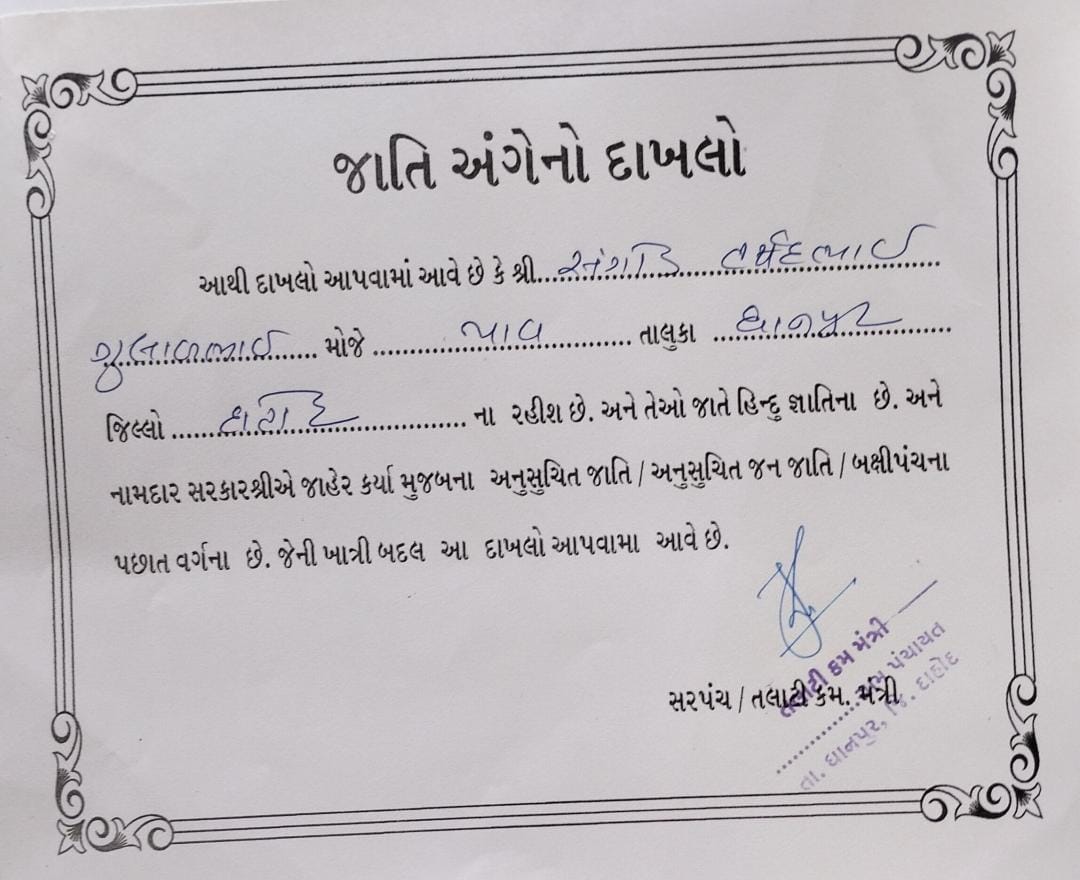 જાતિ અંગેનો દાખલો
આથી દાખલો આપવામાં આવે છે કે શ્રી
ગુલાબભાઈ મોજે પાવ તાલુકા ધાનપુર
જિલ્લો ના રહીશ છે. અને તેઓ જાતે હિન્દુ જ્ઞાતિના છે. અને
નામદાર સરકારશ્રીએ જાહેર કર્યા મુજબના અનુસુચિત જાતિ / અનુસુચિત જન જાતિ / બક્ષીપંચના
પછાત વર્ગના છે. જેની ખાત્રી બદલ આ દાખલો આપવામા આવે છે.
સરપંચ / તલાટી કમ. મંત્રી
તલાટી કમ મંત્રી
પંચાયત
તા. ધાનપુર, જિ. દાહોદ